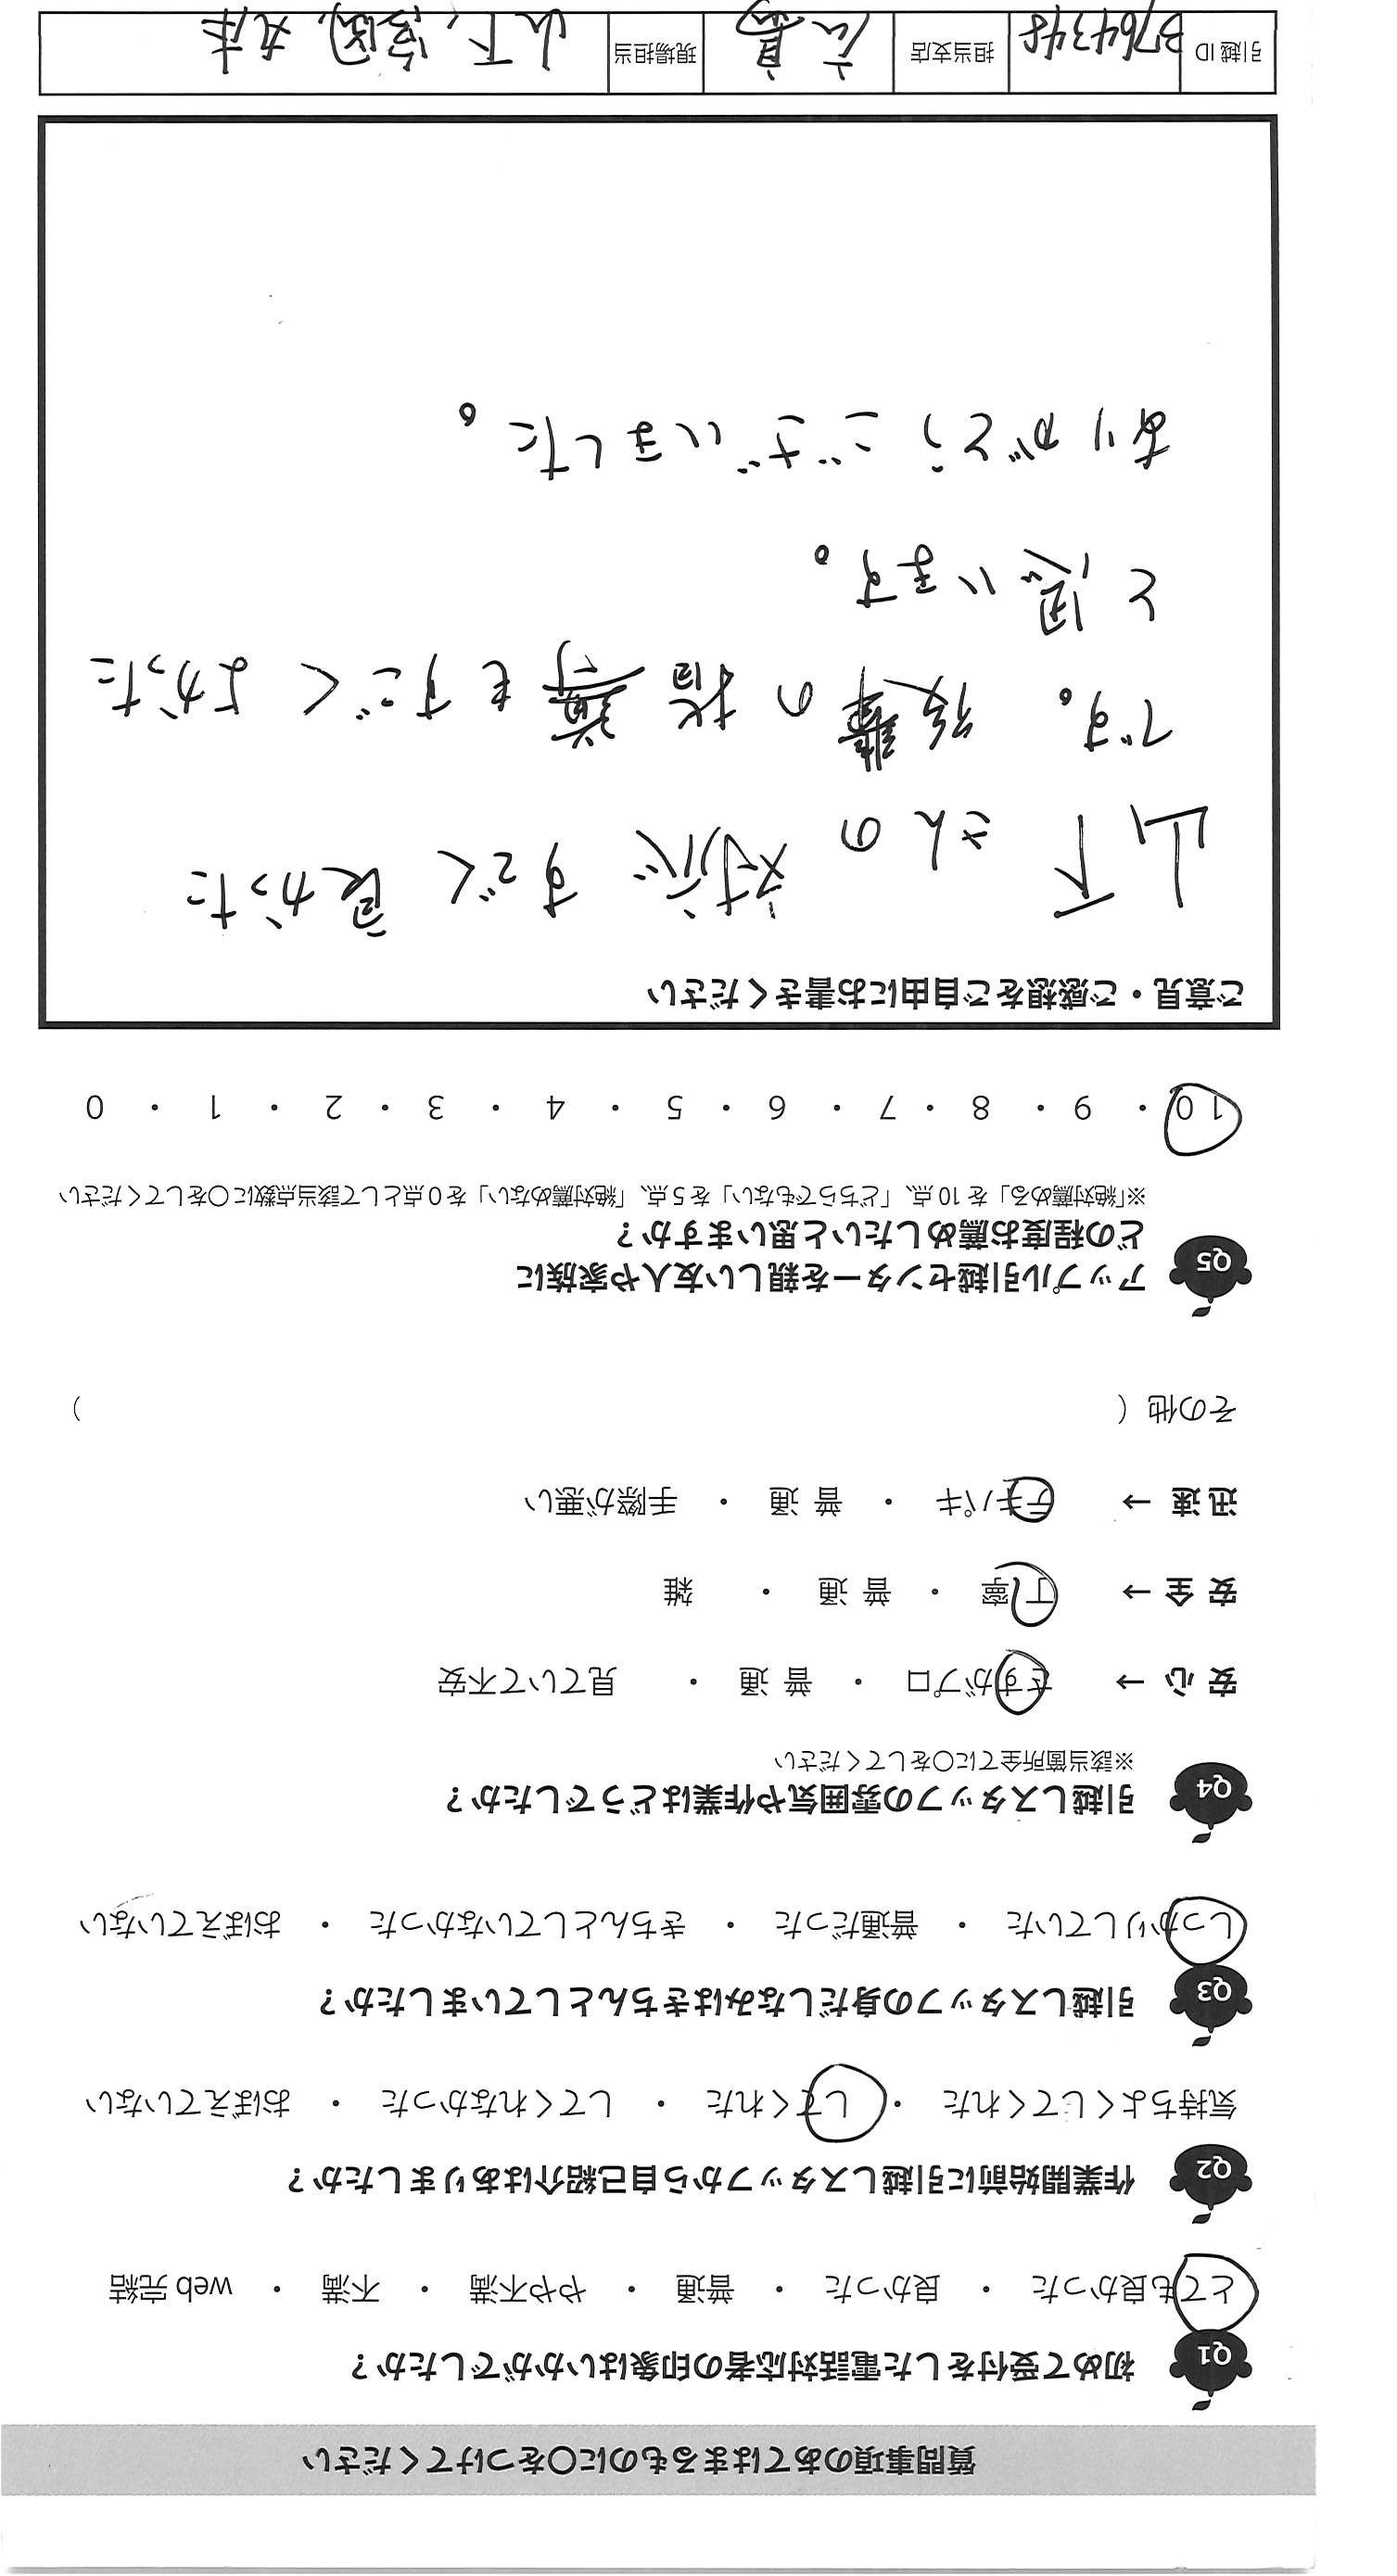 質問事項のあてはまるものに○をつけてください
Q1 初めて受付をした電話対応者の印象はいかがでしたか？
とても良かった ・ 良かった ・ 普通 ・ やや不満 ・ 不満 ・ web 完結
Q2 作業開始前に引越しスタッフから自己紹介はありましたか？
気持ちよくしてくれた ・ してくれた ・ してくれなかった ・ おぼえていない
Q3 引越しスタッフの身だしなみはきちんとしていましたか？
しっかりしていた ・ 普通だった ・ きちんとしていなかった ・ おぼえていない
Q4 引越しスタッフの雰囲気や作業はどうでしたか？
※該当箇所全てに○をしてください
安 心 → さすがプロ ・ 普 通 ・ 見ていて不安
安 全 → 丁 寧 ・ 普 通 ・ 雑
迅 速 → テキパキ ・ 普 通 ・ 手際が悪い
その他（ ）
Q5 アップル引越センターを親しい友人や家族に
どの程度お薦めしたいと思いますか？
※「絶対薦める」を 10 点、「どちらでもない」を 5 点、「絶対薦めない」を 0 点として該当点数に○をしてください
10 ・ 9 ・ 8 ・ 7 ・ 6 ・ 5 ・ 4 ・ 3 ・ 2 ・ 1 ・ 0
ご意見・ご感想をご自由にお書きください
山下さんの対応すごく良かった
です。後輩の指導もすごくよかった
と思います。
ありがとうございました。
引越 ID B764348 担当支店 広島 現場担当 山下、